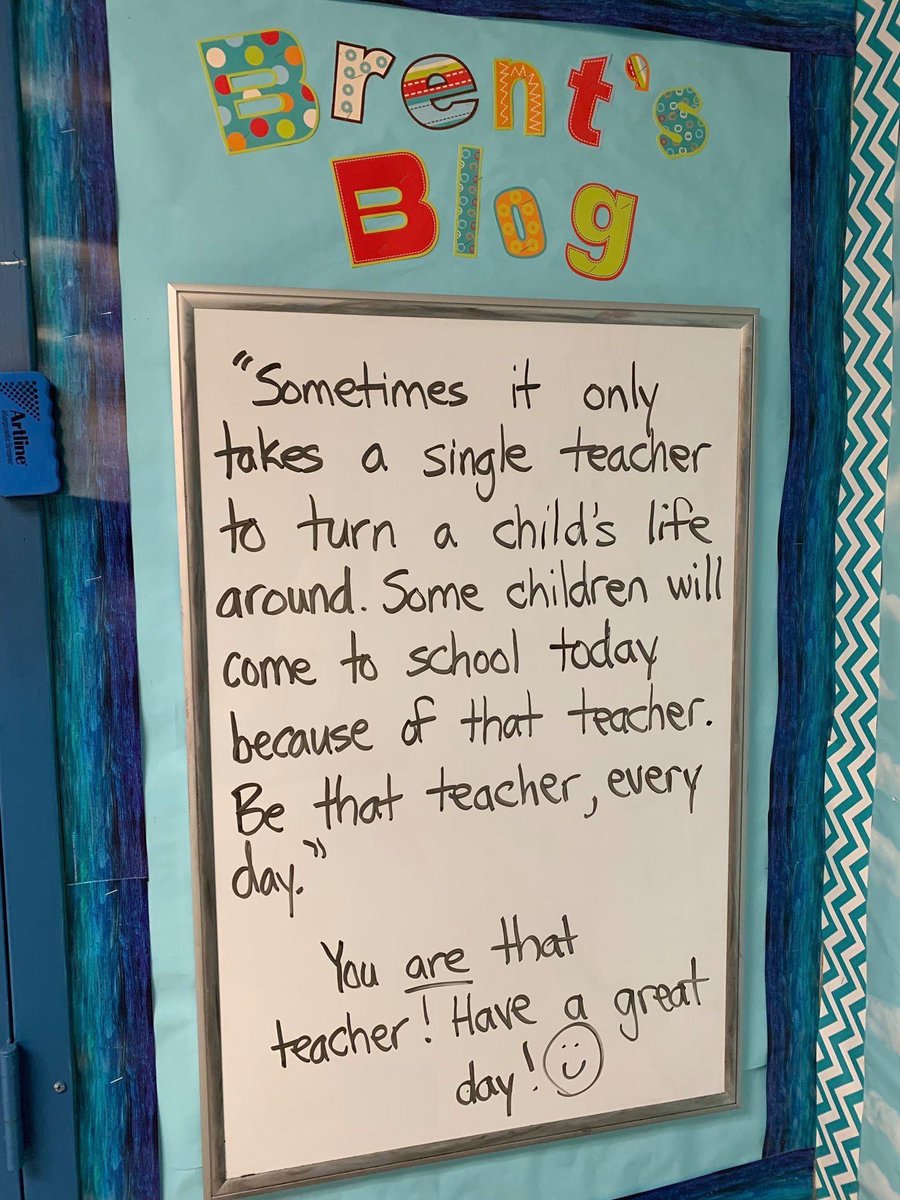 Brent's
Blog
Artline
"Sometimes it only
takes a single teacher
to turn a child's life
around. Some children will
come to school today
because of that teacher.
Be that teacher, every
day."
You are that
teacher! Have a great
day!